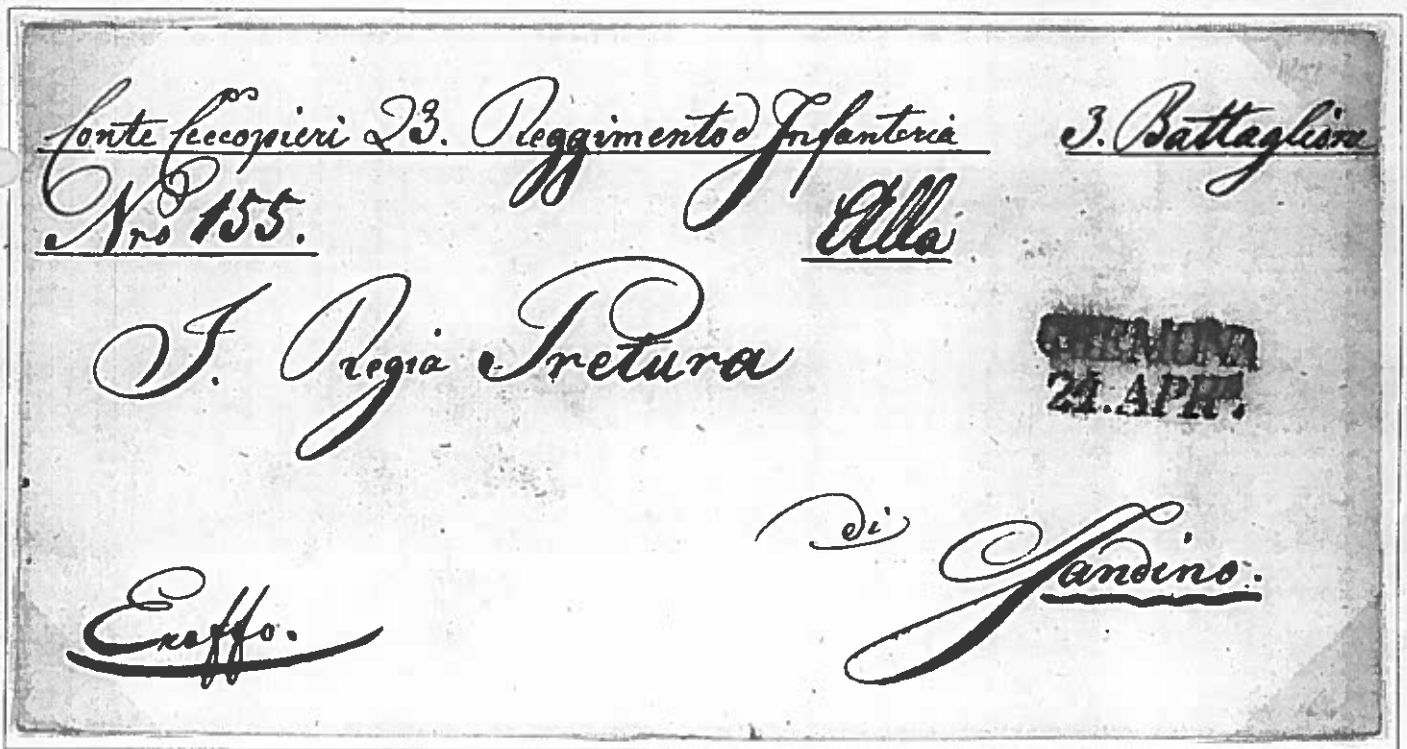 Conte Ceccopieri 23. Reggimento d Infanteria 3. Battaglione
Nro 155. Alla
I. Regia Pretura
CREMONA
21. APR.
di Gandino.
Exoffo.